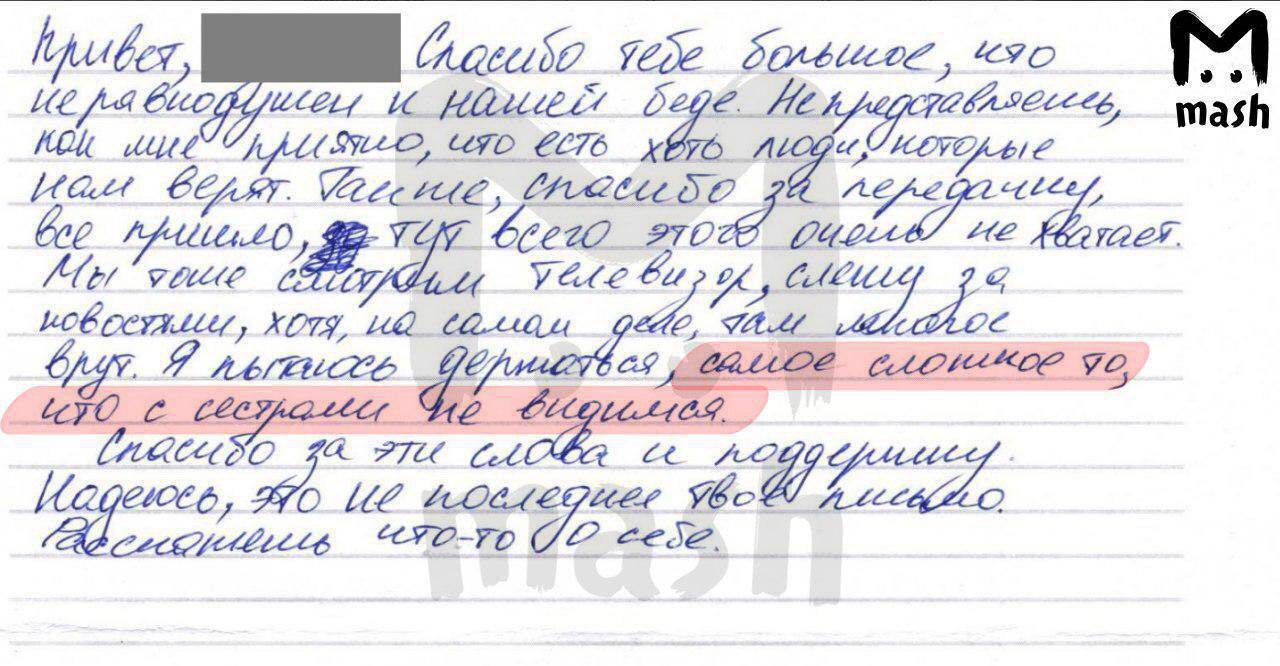 Привет, Спасибо тебе большое, что
неравнодушен к нашей беде. Не представляешь,
как мне приятно, что есть хоть люди, которые
нам верят. Также, спасибо за передачку,
все пришло, тут всего этого очень не хватает.
Мы тоже смотрим телевизор, слежу за
новостями, хотя, на самом деле, там многое
врут. Я пытаюсь держаться, самое сложное то,
что с сестрами не видимся.
Спасибо за эти слова и поддержку.
Надеюсь, это не последнее твое письмо.
Расскажешь что-то о себе.
mash
mash